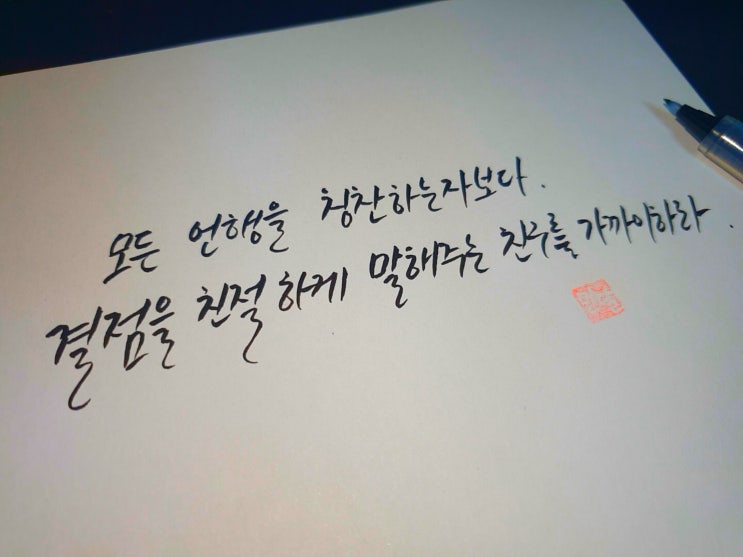 모든 언행을 칭찬하는자보다.
결점을 친절하게 말해주는 친구를 가까이하라.